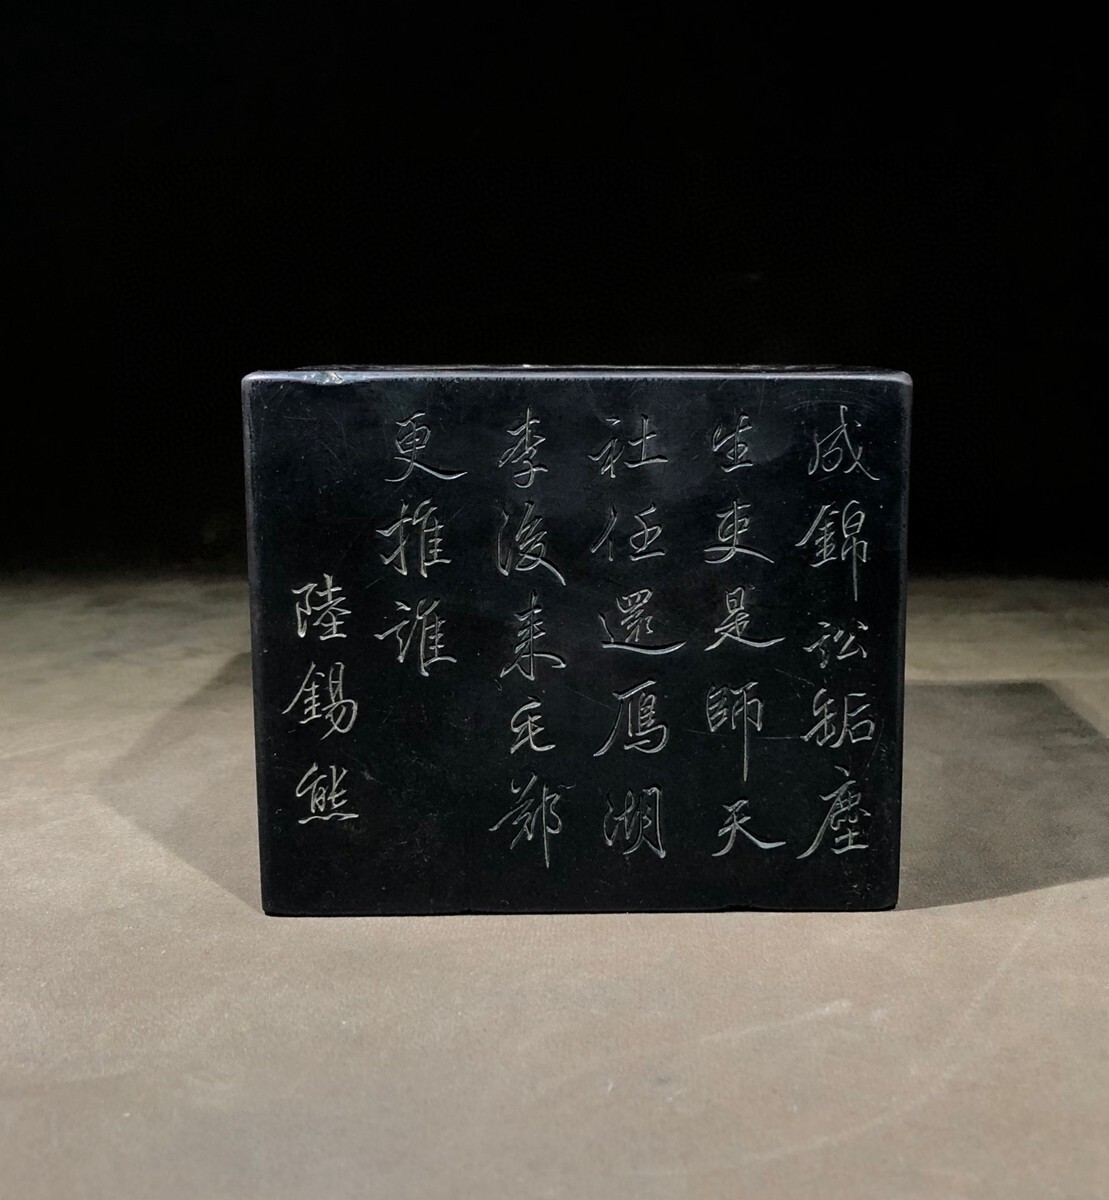 成錦訟缿塵
生吏是師天
社任還鴈湖
李後来毛鄭
更推誰
陸錫熊